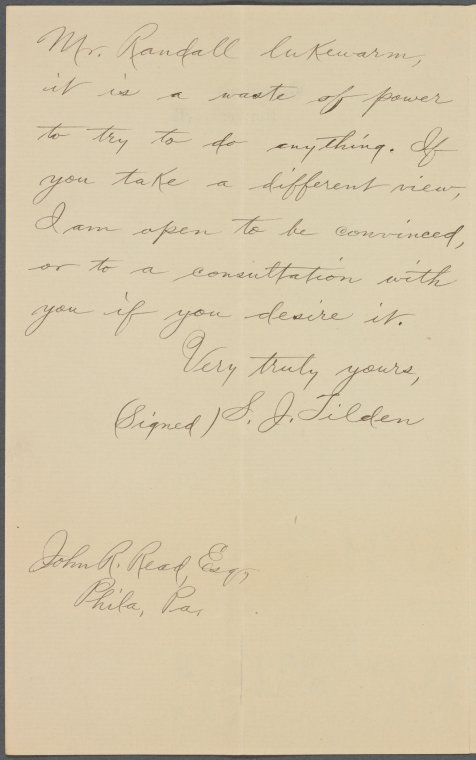 Mr. Randall lukewarm,
it is a waste of power
to try to do anything. If
you take a different view,
I am open to be convinced,
or to a consultation with
you if you desire it.
Very truly yours,
(Signed) S. J. Tilden
John R. Read, Esq.,
Phila, Pa,